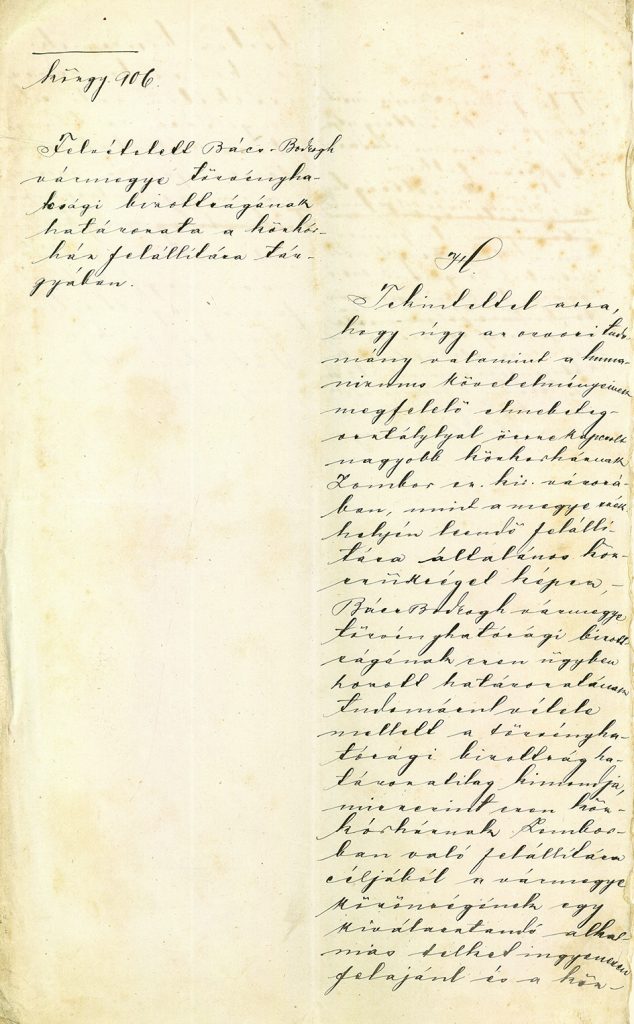 közgy. 906.
Felvétetett Bács-Bodrogh
vármegye törvényha-
tósági bizottságának
határozata a közkór-
ház felállítása tár-
gyában.
Tekintettel arra,
hogy úgy az orvosi tudo-
mány valamint a huma-
nizmus követelményeinek
megfelelő elmebeteg-
osztálylyal összekapcsolt
nagyobb közkórháznak
Zombor sz. kir. városá-
ban, mint a megye szék-
helyén leendő felállí-
tása általános köz-
szükséget képez, –
Bács Bodrogh vármegye
törvényhatósági bizott-
ságának ezen ügyben
hozott határozatának
tudomásul vétele
mellett a törvényha-
tósági bizottság ha-
tározatilag kimondja,
miszerint ezen köz-
kórháznak Zombor-
ban való felállítása
céljából a vármegye
közönségének egy
kiválasztandó alkal-
mas telket ingyenesen
felajánl és a köz-